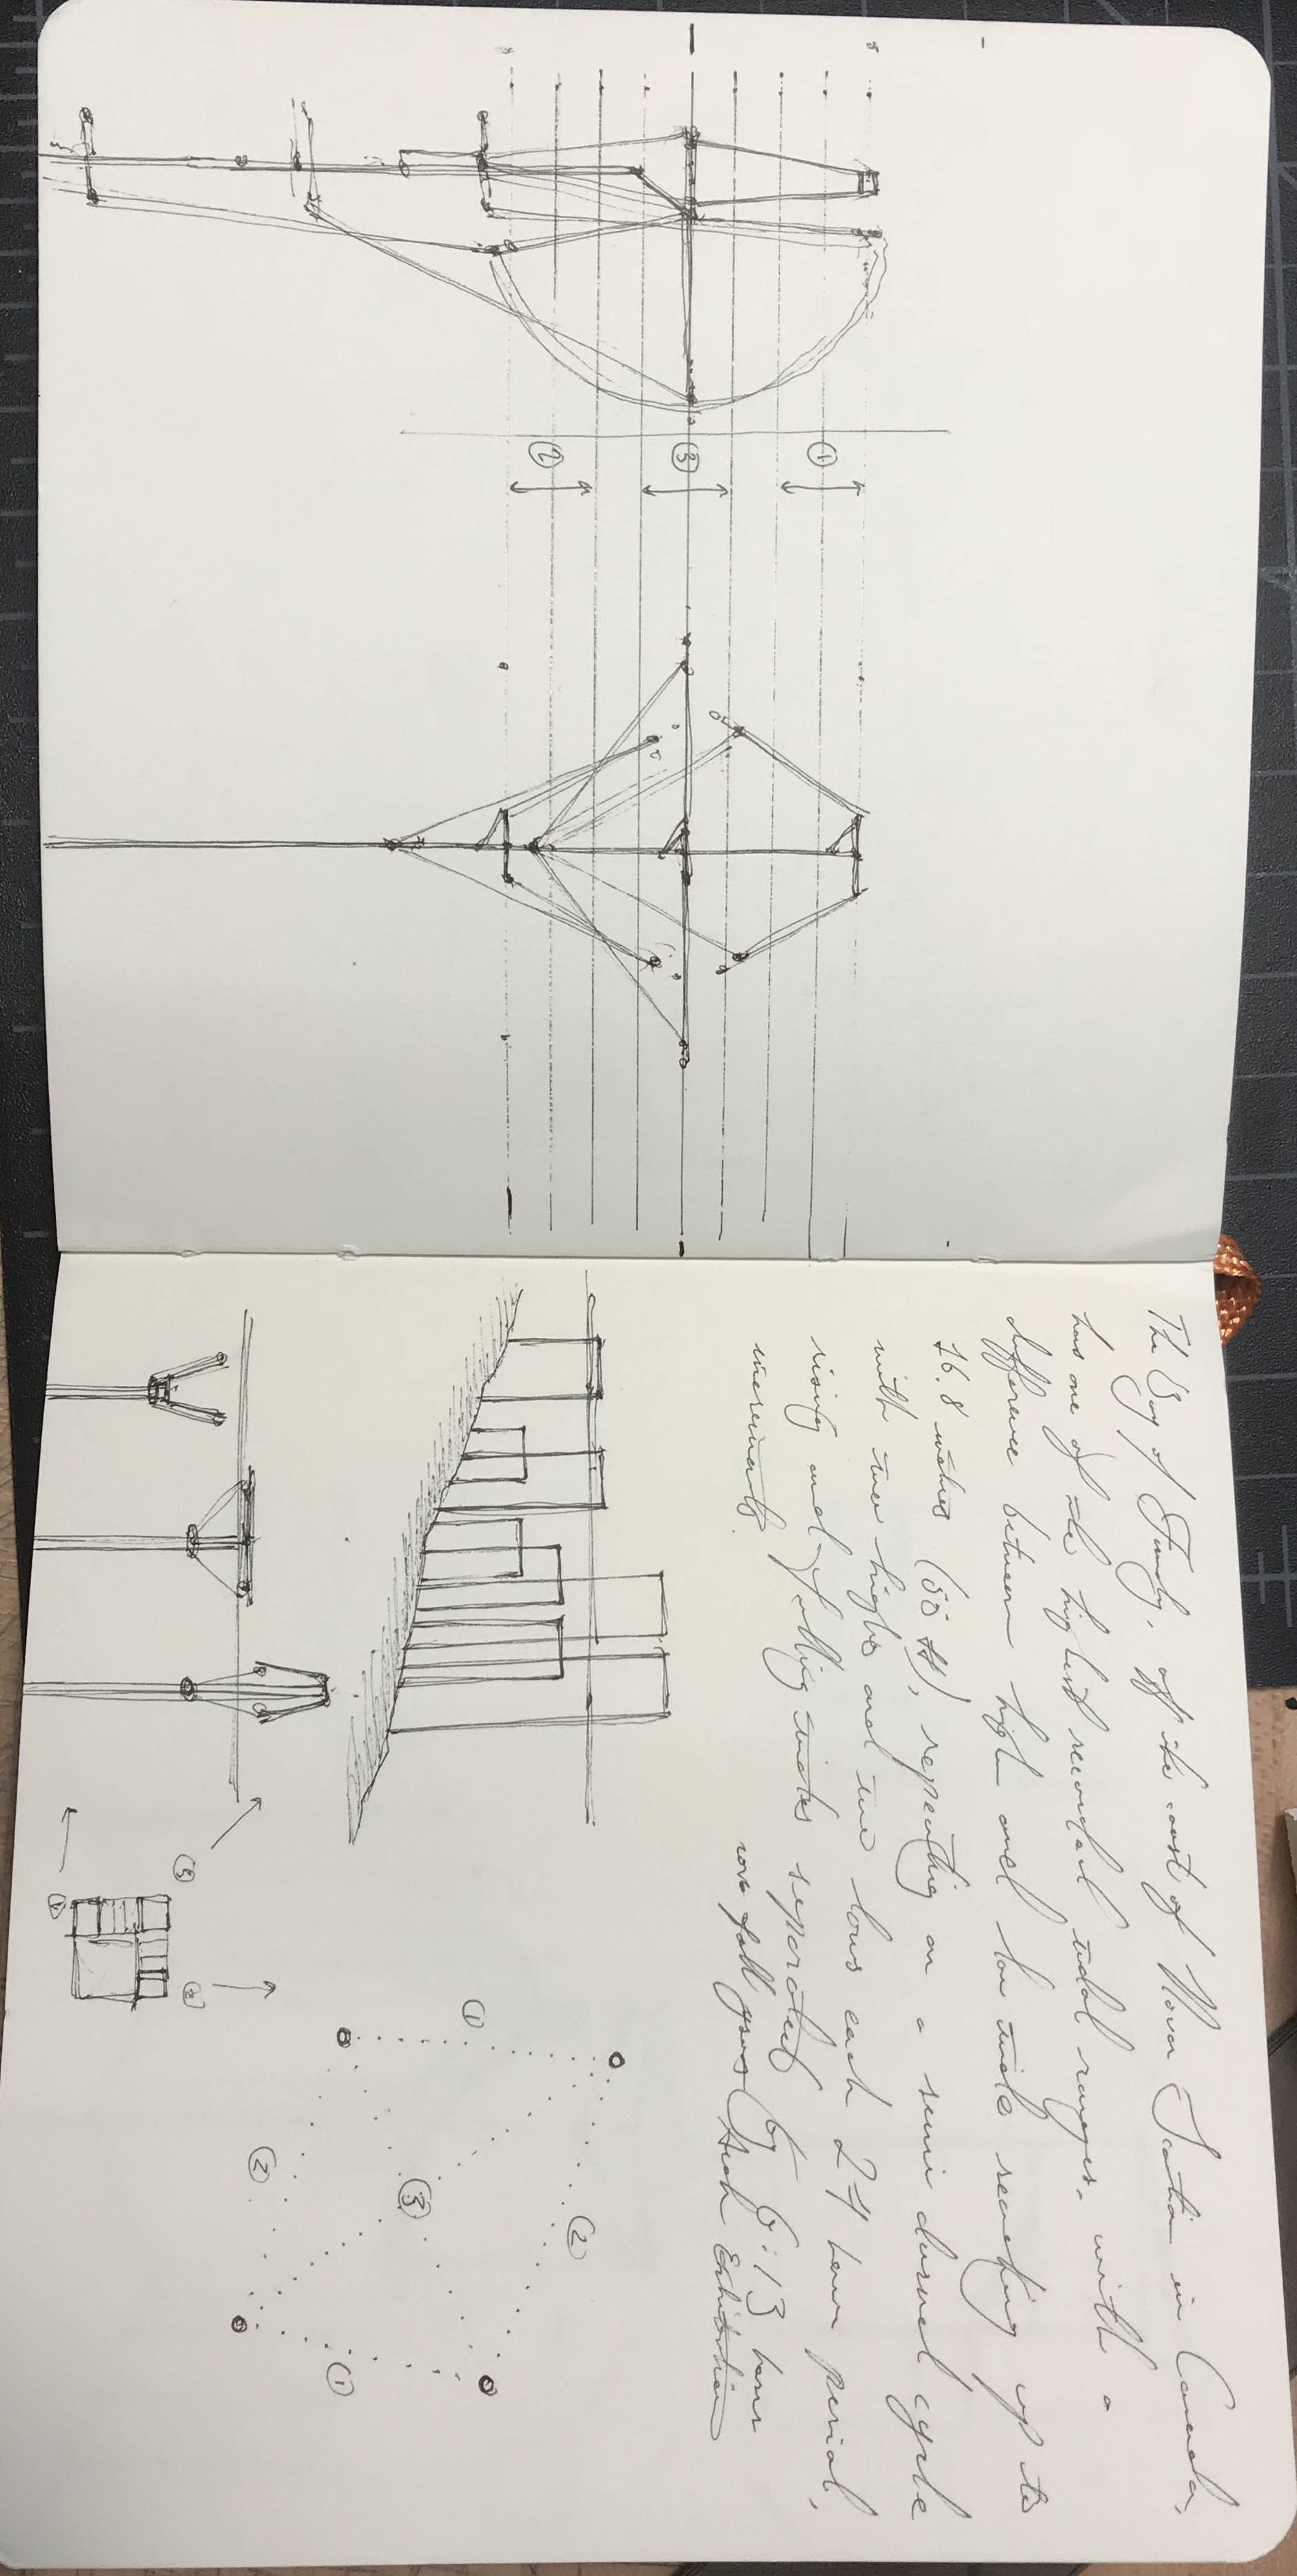 The Bay of Fundy, off the coast of Nova Scotia in Canada,
has one of the highest recorded tidal ranges, with a
difference between high and low tide reaching up to
16.8 metres (55 ft), repeating on a semi diurnal cycle
with two highs and two lows each 24 hour period,
rising and falling tides separated by 6:13 hour
increments.
fall
①
③
②
①
②
③
②
①